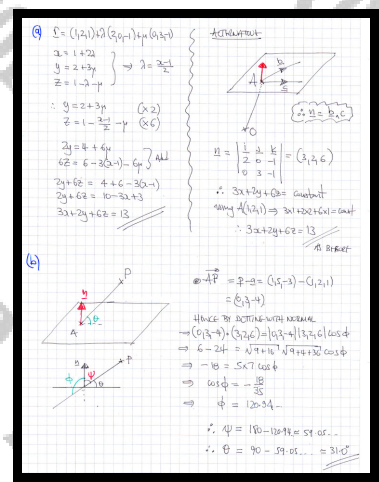 (a) r = (1,2,1) + λ(2,0,-1) + μ(0,3,-1)
x = 1+2λ
y = 2+3μ
z = 1-λ-μ
⇒ λ = x-1/2
∴ y = 2+3μ (×2)
z = 1 - x-1/2 - μ (×6)
2y = 4+6μ
6z = 6-3(x-1)-6μ
Add
2y+6z = 4+6-3(x-1)
2y+6z = 10-3x+3
3x+2y+6z = 13
ALTERNATIVE
A
b
c
O
∴ n = b∧c
n = | i j k |
| 2 0 -1 | = (3,2,6)
| 0 3 -1 |
∴ 3x+2y+6z = constant
using A(1,2,1) ⇒ 3×1+2×2+6×1 = const
∴ 3x+2y+6z = 13
AS BEFORE
(b)
n
P
θ
A
n
P
φ
ψ
θ
AP = p-a = (1,5,-3)-(1,2,1)
= (0,3,-4)
HENCE BY DOTTING WITH NORMAL
⇒ (0,3,-4)•(3,2,6) = |0,3,-4||3,2,6| cosφ
⇒ 6-24 = √9+16 √9+4+36 cosφ
⇒ -18 = 5×7 cosφ
⇒ cosφ = -18/35
⇒ φ = 120.94...
∴ ψ = 180-120.94.. = 59.05...
∴ θ = 90 - 59.05.... ≈ 31.0°